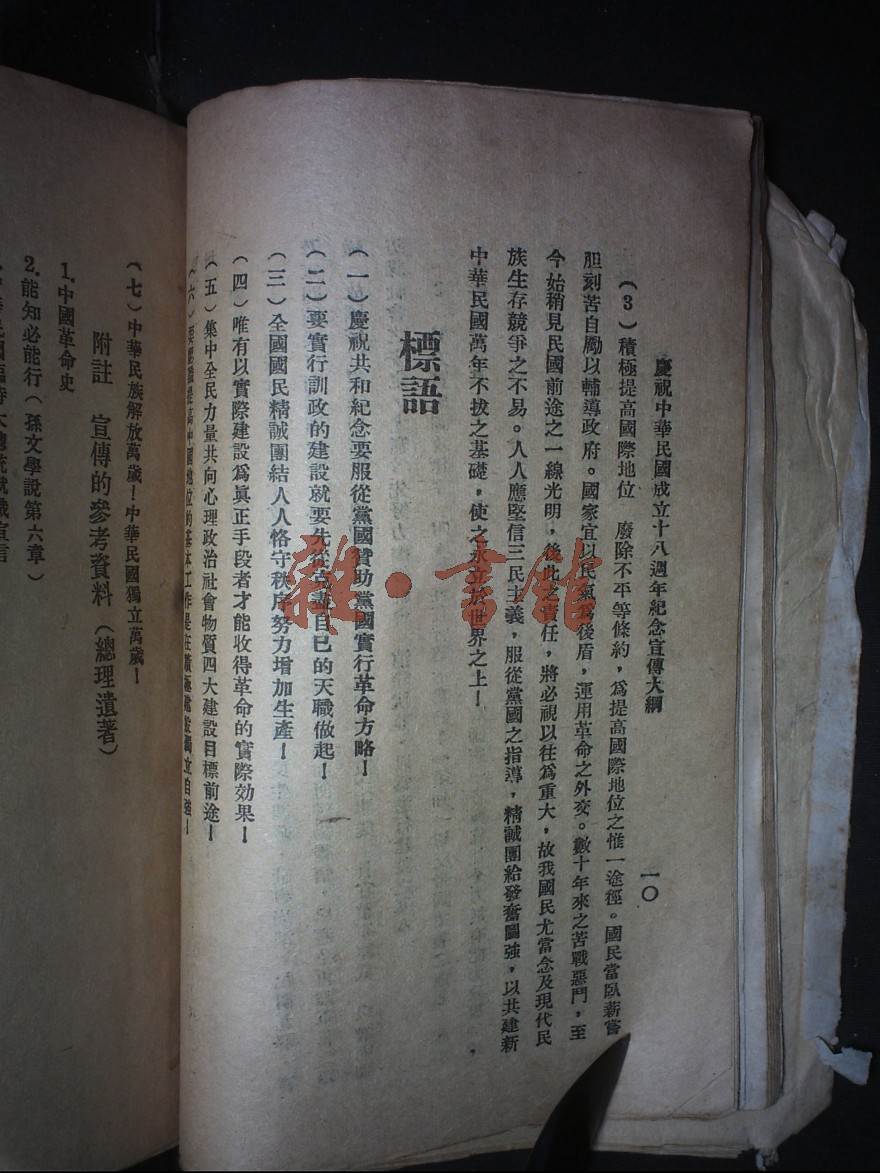 慶祝中華民國成立十八週年紀念宣傳大綱
一〇
(3)積極提高國際地位　廢除不平等條約,爲提高國際地位之惟一途徑。國民當臥薪嘗
胆刻苦自勵以輔導政府。國家宜以民氣爲後盾,運用革命之外交。數十年來之苦戰惡鬥,至
今始稍見民國前途之一線光明,後此之責任,將必視以往爲重大,故我國民尤當念及現代民
族生存競爭之不易。人人應堅信三民主義,服從黨國之指導,精誠團給發奮圖強,以共建新
中華民國萬年不拔之基礎,使之永立於世界之上!
標語
(一)慶祝共和紀念要服從黨國贊助黨國實行革命方略!
(二)要實行訓政的建設就要先從克盡自已的天職做起!
(三)全國國民精誠團結人人恪守秩序努力增加生產!
(四)唯有以實際建設爲眞正手段者才能收得革命的實際效果!
(五)集中全民力量共向心理政治社會物質四大建設目標前途!
(六)要 提高中國地位的基本工作是在積極建設獨立自強!
(七)中華民族解放萬歲!中華民國獨立萬歲!
附註　宣傳的參考資料(總理遺著)
1.中國革命史
2.能知必能行(孫文學說第六章)
民國臨時大總統就職宣言
雜·書館